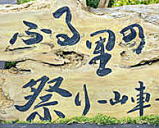 ふる里の
祭り山車